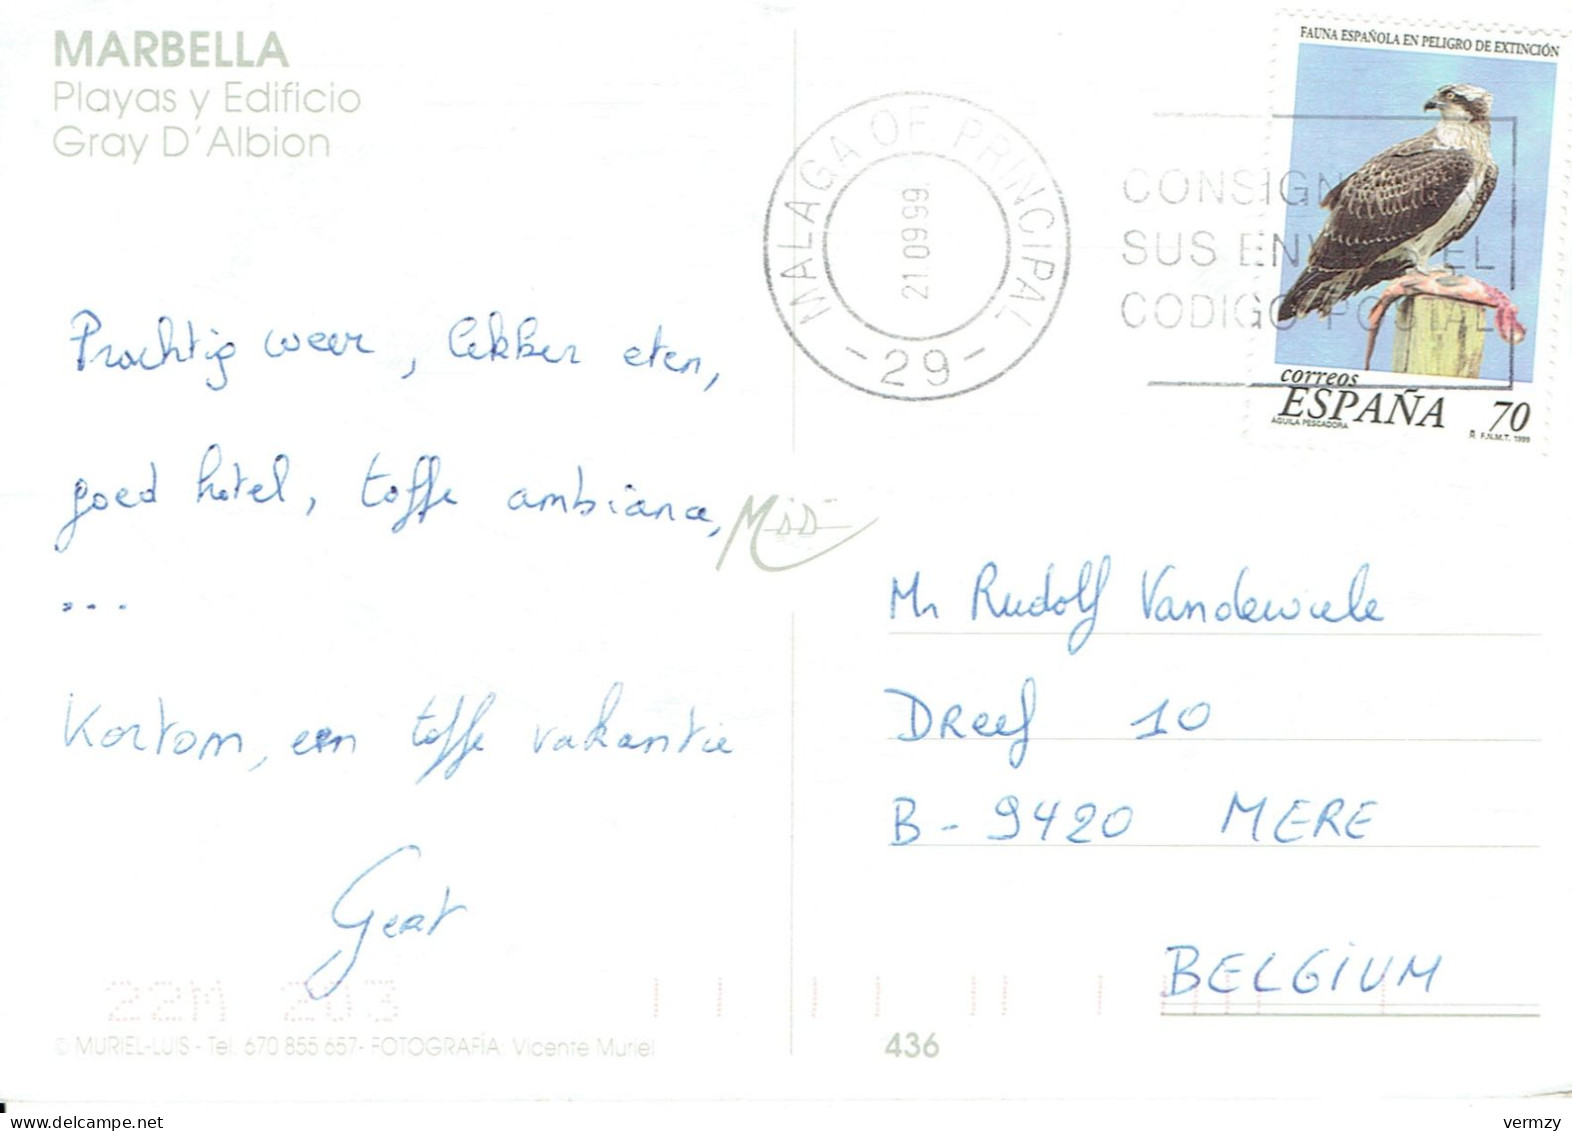 MARBELLA
Playas y Edificio
Gray D'Albion
FAUNA ESPAÑOLA EN PELIGRO DE EXTINCIÓN
MALAGA OF PRINCIPAL
21.09.99.
- 29 -
CONSIGN
SUS ENV EL
CODIGO POSTAL
correos
ESPAÑA 70
AGUILA PESCADORA
F.N.M.T. 1999
Prachtig weer, lekker eten,
goed hotel, toffe ambiance,
...
Kortom, een toffe vakantie
Geert
Mr Rudolf Vandewiele
Dreef 10
B - 9420 MERE
BELGIUM
22M 203
© MURIEL-LUIS - Tel. 670 855 657- FOTOGRAFÍA: Vicente Muriel
436
vermzy